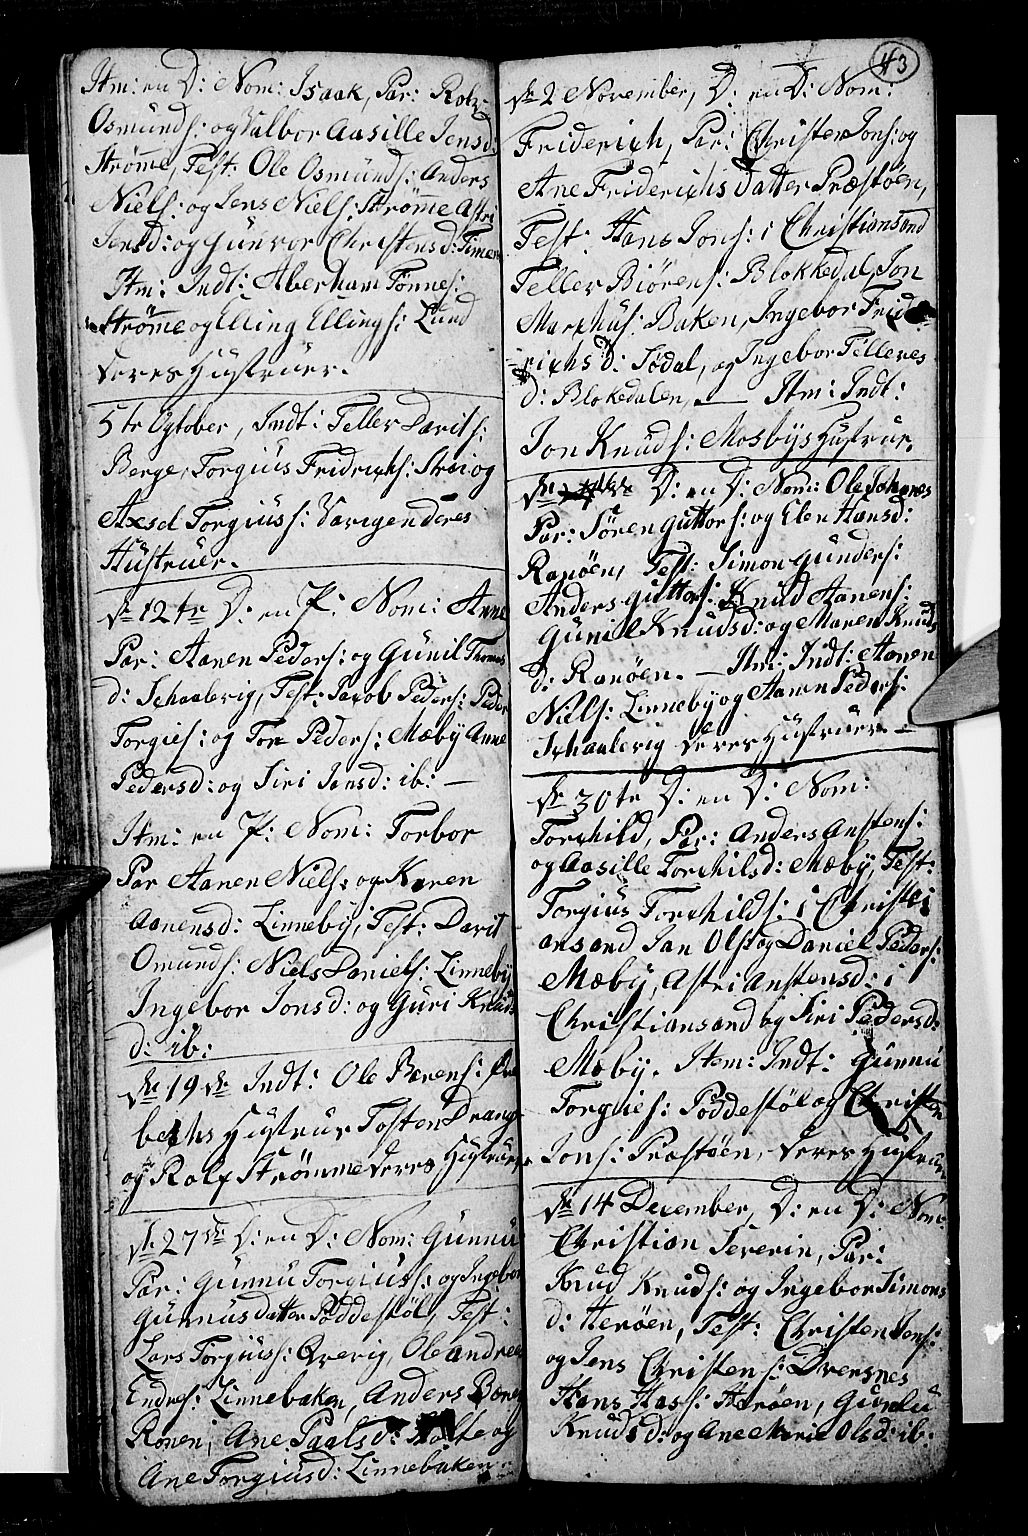 Itm: en D: Nom: Isaak, Par: Rolf
Osmunds: og Valbor Aasille Jensd:
Strøm̅e, Test: Ole Osmunds: Anders
Niels: og Jens Niels: Strøm̅e Astri
Jensd: og Gunvor Christensd: Timen
Itm: Indt: Aberham Tønnes:
Strøm̅e og Elling Ellings: Lund
deres Hustruer.
5te October, Indt: Teller Davits:
Berge, Torgius Fridrichs: Stræi og
Axsel Torgiuss: Varigen deres
Hustruer.
dn 12te D: en P: Nom: Anne
Par: Aanen Peders: og Gunil Thomas
d: Schaalevig, Test: Jacob Peders: Peder
Torgies: og Tor Peders: Mæby Anne
Pedersd: og Siri Jansd: ib: —
Itm: en P: Nom: Torbor
Par Aanen Niels: og Karen
Aanensd: Linneby, Test: Davit
Omunds: Niels Daniels: Linneby
Ingebor Jonsd: og Guri Knuds
d: ib:
dn 19de Indt: Ole Børens:
bechs Hustrue Tosten Drang
og Rolf Strømme deres Hustruer
dn 27de D: en D: Nom: Gunnu
Par: Gunnu Torgiuss: og Ingebor
Gunnus datter Poddestøl, Test:
Lars Torgiuss: Qverig, Ole Andree
Endres: Linnebaken, Anders Børens
Rønen, Ane Paalsd: Holte og
Ane Torgiusd: Linnebaken.
43
dn 2 November, D: en D: Nom:
Friderich, Par: Christen Jons: og
Ane Friderichs datter Præstøen,
Test: Hans Jons: i Christiansand
Teller Biørens: Blokkedal, Jon
Marchus: Baken, Ingebor Fride
richs d: Sødal, og Ingebor Telleres
d: Blokedalen, — Itm: Indt:
Jon Knuds: Mosbys Hustrue,
D: en D: Nom: Ole Johanes
Par: Sören Guttors: og Elen Hansd:
Ranöen, Test: Simon Gunders:
Anders Guttors: Knud Aanens:
Gunil Knudsd: og Maren Knuds
d: Ranöen. — Itm: Indt: Aanen
Niels: Linneby og Aanen Peders:
Schaalevig deres Hustruer. —
dn 30te D: en D: Nom:
Torchild, Par: Anders Anstens:
og Aasille Torchilsd: Mæby, Test:
Torgius Torchilds: i Christi
ansand Jan Ols: og Daniel Peders:
Mæby, Astri Anstensd: i
Christiansand og Siri Pedersd:
Mæby. Item: Indt: Gunnu
Torguies: Poddestøl og Christen
Jons: Præstøen, deres Hustruer
dn 14 December, D: en D: Nom:
Christian Severin, Par:
Knud Knuds: og Ingebor Simons
d: Herøen, Test: Christen Jens:
og Jens Christens: Dversnes
Hans Hass: Herøen, Gunlu
Knuds d: og Ane Marie Olsd: ib: